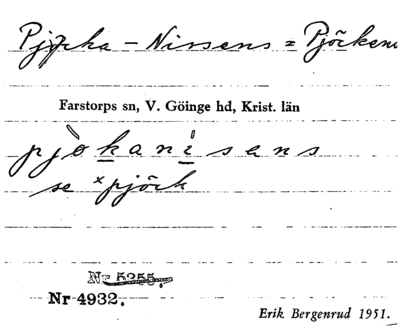 Pjöcka - Nissens = Pjöckens
Farstorps sn, V. Göinge hd, Krist. län
pjòkanisens
se ˣpjöck
Nr 5255.
Nr 4932.
Erik Bergenrud 1951.